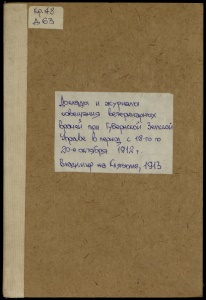 Кр.48
Д 63
Доклады и журналы
совещания ветеринарных
врачей при Губернской Земской
Управе в период с 18-го по
20-е октября 1912 г.
Владимир на Клязьме, 1913